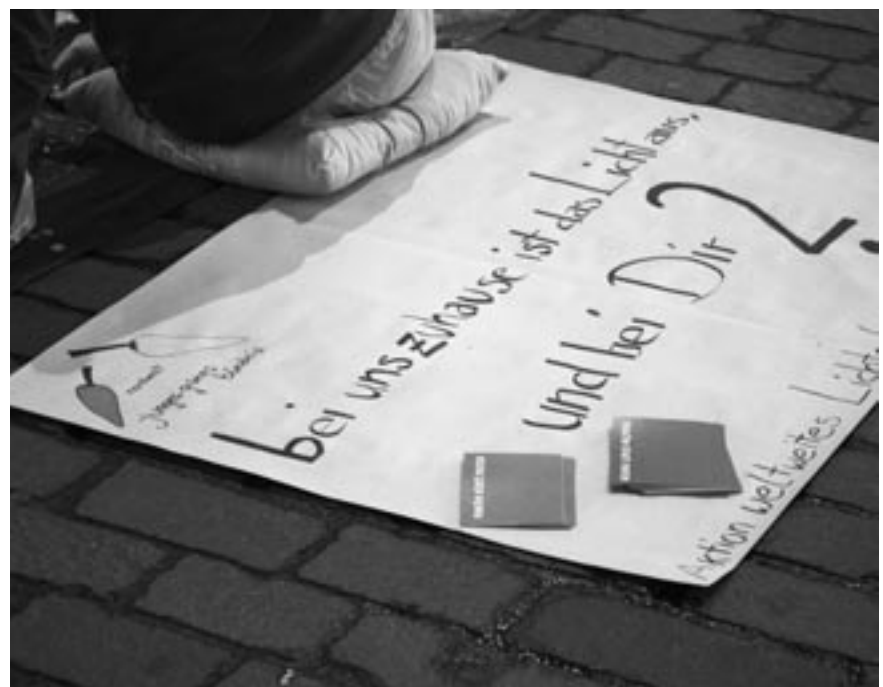 bei uns zuhause ist das Licht aus,
und bei Dir ?
Aktion weltweites